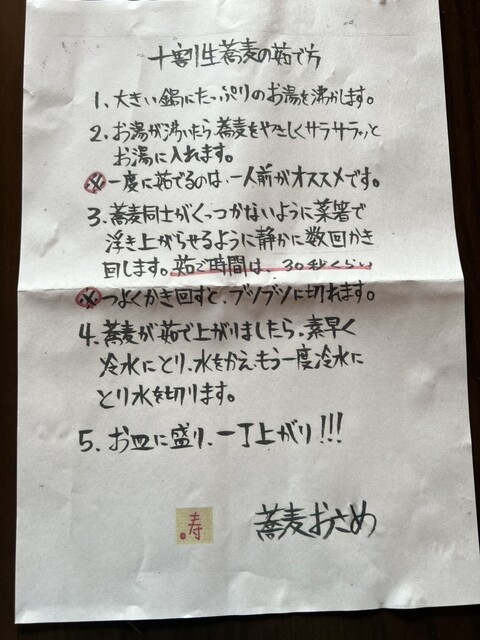 十割生蕎麦の茹で方
1、大きい鍋にたっぷりのお湯を沸かします。
2、お湯が沸いたら蕎麦をやさしくサラサラッと
お湯に入れます。
※一度に茹でるのは、一人前がオススメです。
3、蕎麦同士がくっつかないように菜箸で
浮き上がらせるように静かに数回かき
回します。茹で時間は、30秒くらい
※つよくかき回すと、ブツブツに切れます。
4、蕎麦が茹で上がりましたら、素早く
冷水にとり、水をかえ、もう一度冷水に
とり水を切ります。
5、お皿に盛り、一丁上がり!!!
寿
蕎麦おさめ